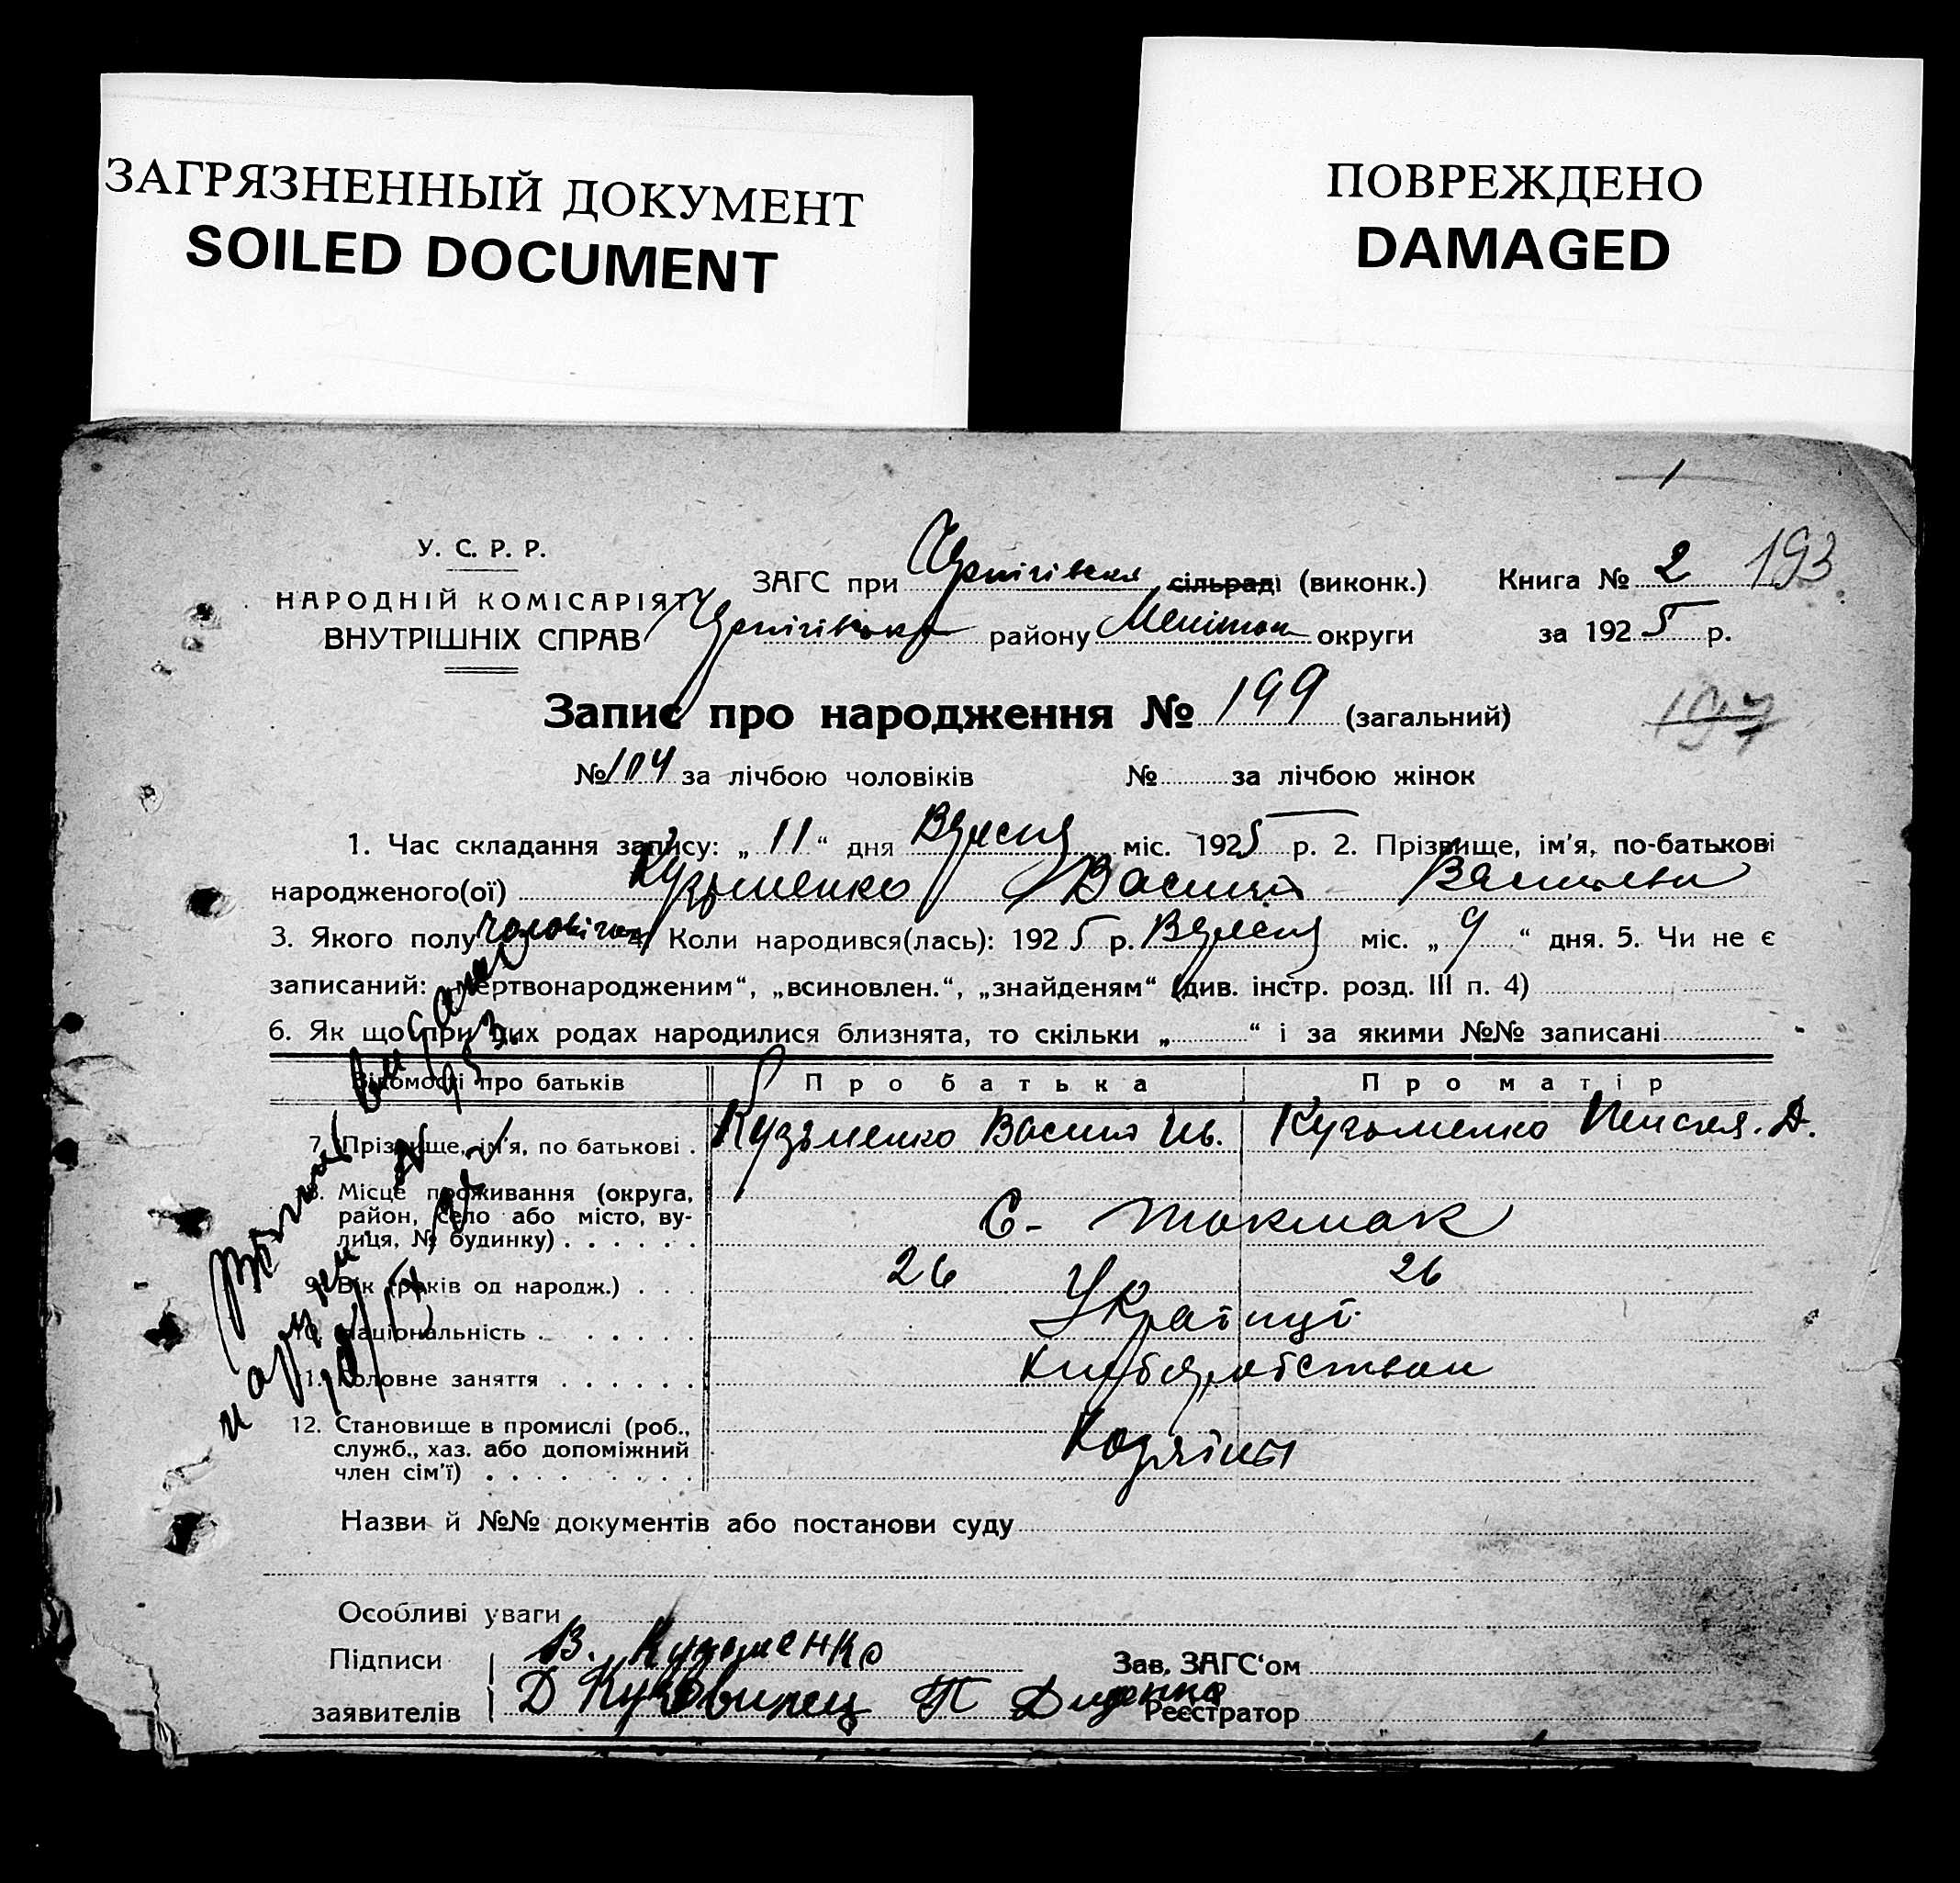 ЗАГРЯЗНЕННЫЙ ДОКУМЕНТ
SOILED DOCUMENT
ПОВРЕЖДЕНО
DAMAGED
У. С. Р. Р.
НАРОДНІЙ КОМІСАРІЯТ
ВНУТРІШНІХ СПРАВ
ЗАГС при сільраді (виконк.)
району округи
Книга № 2 193
за 1925 р.
Запис про народження № 199 (загальний)
№ 104 за лічбою чоловіків № за лічбою жінок
1. Час складання запису: „ 11 “ дня Вересня міс. 1925 р. 2. Прізвище, ім'я, по-батькові
народженого(ої) Кузьменко Василь
3. Якого полу 4. Коли народився(лась): 1925 р. Вересня міс. „ 9 “ дня. 5. Чи не є
записаний: „мертвонародженим“, „всиновлен.“, „знайденям“ (див. інстр. розд. III п. 4)
6. Як що при цих родах народилися близнята, то скільки „ “ і за якими №№ записані
Відомості про батьків Про батька Про матір
7. Прізвище, ім'я, по батькові . Кузьменко Василь Ив. Кузьменко Д.
8. Місце проживання (округа,
район, село або місто, ву-
лиця, № будинку) . . . . . . С- Токмак
9. Вік (років од народж.) . . . 26 26
10. Національність . . . . . . Українці
11. Головне заняття . . . . . .
12. Становище в промислі (роб.,
служб., хаз. або допоміжний
член сім'ї) . . . . . . . . .
Назви й №№ документів або постанови суду
Особливі уваги
Підписи В. Кузьменко Зав. ЗАГС'ом
заявителів Д Т Діденко Реєстратор